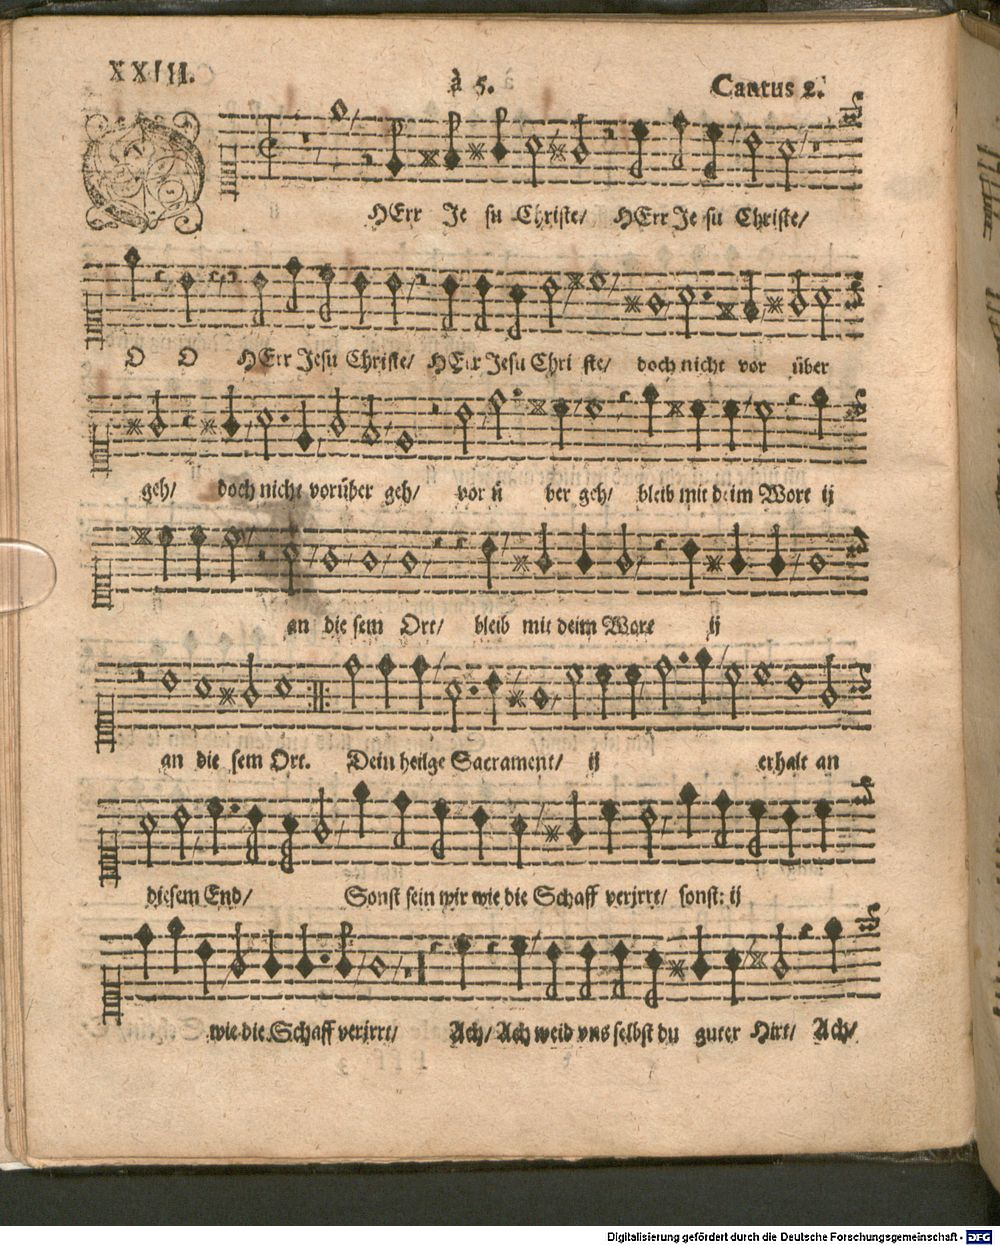 XXIII.
à 5.
Cantus 2.
O
HErr Je su Christe/ HErr Je su Christe/
O O HErr Jesu Christe/ HErr Jesu Chri ste/ doch nicht vor über
geh/ doch nicht vorüber geh/ vor ü ber geh/ bleib mit deim Wort ij
an die sem Ort/ bleib mit deim Wort ij
an die sem Ort. Dein heilge Sacrament/ ij erhalt an
diesem End/ Sonst sein wir wie die Schaff verjrrt/ sonst: ij
wie die Schaff verjrrt/ Ach/ Ach weid vns selbst du guter Hirt/ Ach/
Digitalisierung gefördert durch die Deutsche Forschungsgemeinschaft - DFG